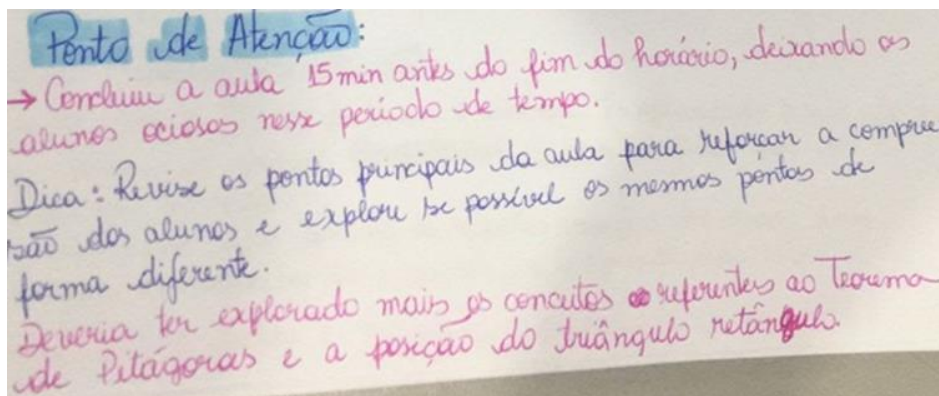 Ponto de Atenção:
→ Concluiu a aula 15min antes do fim do horário, deixando os
alunos ociosos nesse período de tempo.
Dica: Revise os pontos principais da aula para reforçar a compree
são dos alunos e explore se possível os mesmos pontos de
forma diferente.
Deveria ter explorado mais os conceitos referentes ao Teorema
de Pitágoras e a posição do triângulo retângulo.